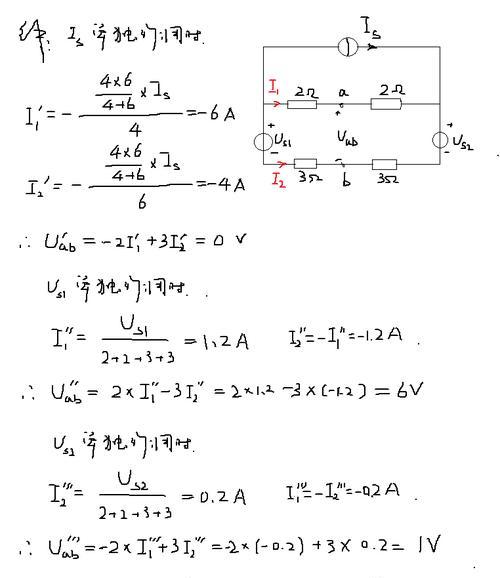 解: I_s 单独作用时.
I_1' = - \frac{\frac{4×6}{4+6}×I_s}{4} = -6A
I_2' = - \frac{\frac{4×6}{4+6}×I_s}{6} = -4A
I_s
I_1 2Ω a 2Ω
+ + +
U_{s1} U_{ab} U_{s2}
- - -
I_2 3Ω b 3Ω
∴ U_{ab}' = -2I_1' + 3I_2' = 0 V
U_{s1} 单独作用时.
I_1'' = \frac{U_{s1}}{2+2+3+3} = 1.2A I_2'' = -I_1'' = -1.2A.
∴ U_{ab}'' = 2×I_1'' - 3I_2'' = 2×1.2 - 3×(-1.2) = 6V
U_{s2} 单独作用时.
I_2''' = \frac{U_{s2}}{2+2+3+3} = 0.2A I_1''' = -I_2''' = -0.2A.
∴ U_{ab}''' = -2×I_1''' + 3I_2''' = -2×(-0.2) + 3×0.2 = 1V